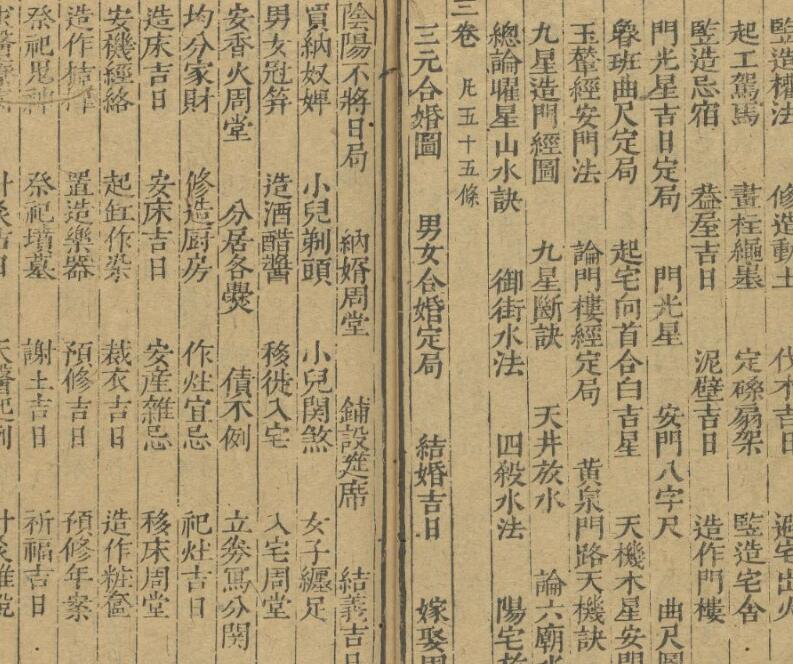 監造權法　修造動土　伐木吉日　避宅出火
起工駕馬　畫柱繩墨　定磉扇架　監造宅舍
監造忌宿　蓋屋吉日　泥壁吉日　造作門樓
門光星吉日定局　門光星　安門八字尺　曲尺圖
魯班曲尺定局　起宅向首合白吉星　天機木星安門
玉輦經安門法　論門樓經定局　黃泉門路天機訣
九星造門經圖　九星斷訣　天井放水　論六廟水
總論曜星山水訣　御街水法　四殺水法　陽宅
三卷　凡五十五條
三元合婚圖　男女合婚定局　結婚吉日　嫁娶周
陰陽不將日局　納婿周堂　鋪設筵席　結義吉日
買納奴婢　小兒剃頭　小兒関煞　女子纏足
男女冠笄　造酒醋醬　移徙入宅　入宅周堂
安香火周堂　分居各爨　債不例　立券寫分関
均分家財　修造厨房　作灶宜忌　祀灶吉日
造床吉日　安床吉日　安產雜忌　移床周堂
安機經絡　起缸作染　裁衣吉日　造作粧奩
造作　置造樂器　預修吉日　預修年案
祭祀鬼神　祭祀墳墓　謝土吉日　祈福吉日
求醫　針灸吉日　天醫